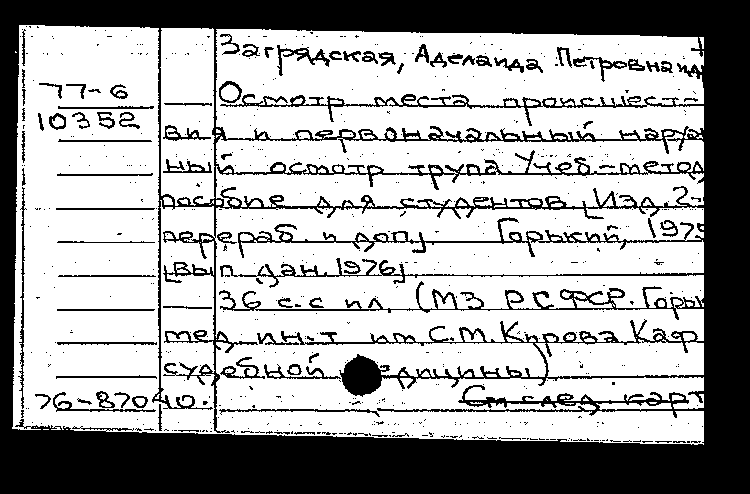 Загрядская, Аделаида Петровна и др
77-6
Осмотр места происшест-
10352
вия и первоначальный наруж
ный осмотр трупа. Учеб.-метод
пособие для студентов. [Изд. 2-
перераб. и доп.]. Горький, 1975
[вып. дан. 1976].
36 с. с ил. (МЗ РСФСР. Горьк
мед. ин-т им. С.М. Кирова. Каф
судебной медицины)
76-87040. См след. карт